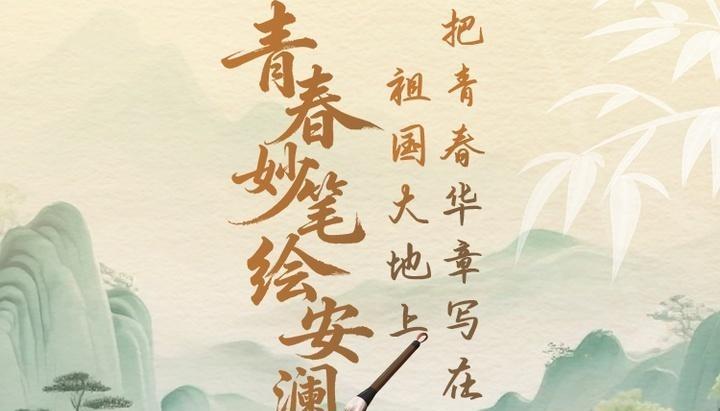 把青春华章写在
祖国大地上
青春妙笔绘安澜